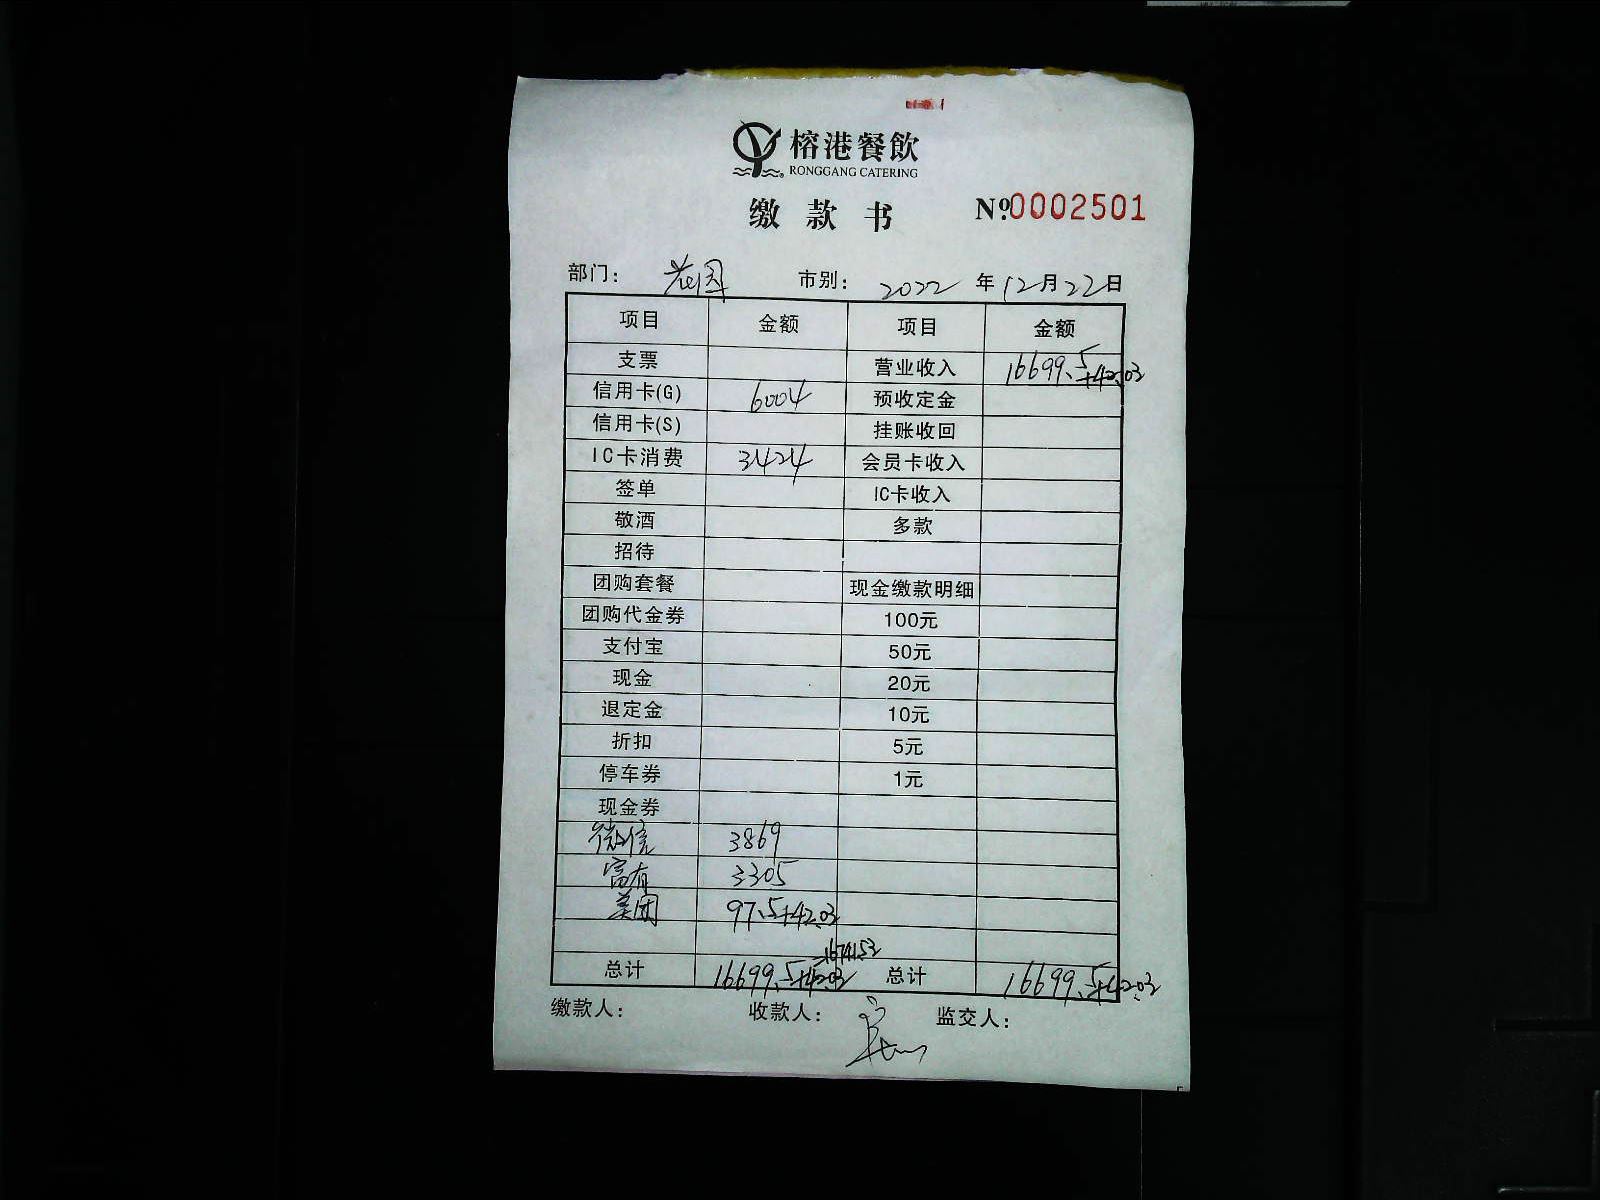 榕港餐飲
RONGGANG CATERING
缴款书 Nº:0002501
部门: 花园 市别: 2022年12月22日
项目 金额 项目 金额
支票 营业收入 16699.5+42.03
信用卡(G) 6004 预收定金
信用卡(S) 挂账收回
IC卡消费 3424 会员卡收入
签单 IC卡收入
敬酒 多款
招待
团购套餐 现金缴款明细
团购代金券 100元
支付宝 50元
现金 20元
退定金 10元
折扣 5元
停车券 1元
现金券
微信 3869
富有 3305
美团 97.5+42.03
=16741.53
总计 16699.5+42.03 总计 16699.5+42.03
缴款人: 收款人: 监交人: